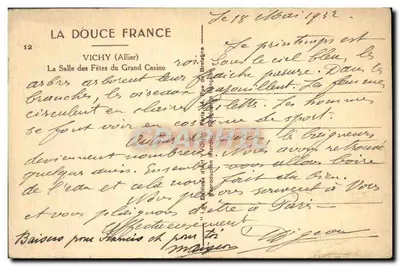 LA DOUCE FRANCE
12
VICHY (Allier)
La Salle des Fêtes du Grand Casino
le 18 Mai 1932
Le printemps est
roi sous le ciel bleu, les
arbres arborent leur fraîche parure. Dans les
branches, les oiseaux gazouillent. Les femmes
circulent en claires toilettes. Les hommes
se font voir en costume de sport.
les baigneurs
deviennent nombreux. Nous avons retrouvé
quelques amis. Ensemble nous allons boire
de l'eau et cela nous fait du bien.
Nous pensons souvent à Vous
et vous plaignons d'être à Paris
affectueusement
Baisers pour Francis et pour toi
CPAPHIL.COM